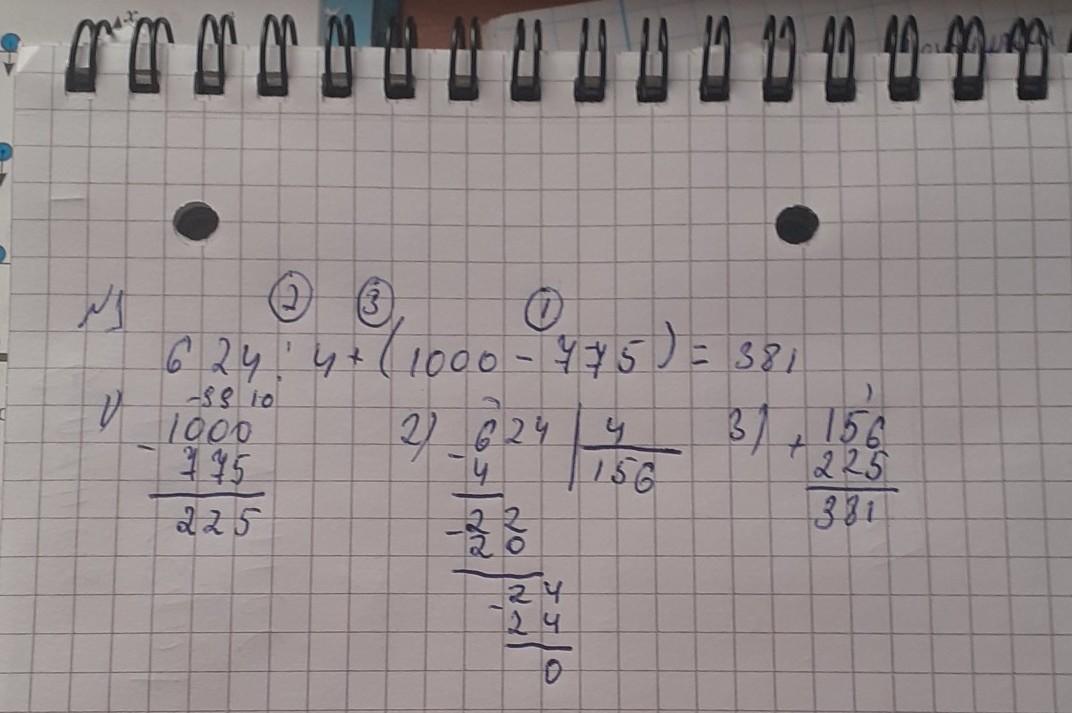 №1
② ③ ①
624 : 4 + (1000 - 775) = 381
1) -99 10
- 1000
775
225
2) - 624 | 4
4 | 156
- 22
20
- 24
24
0
3) 1
+ 156
225
381